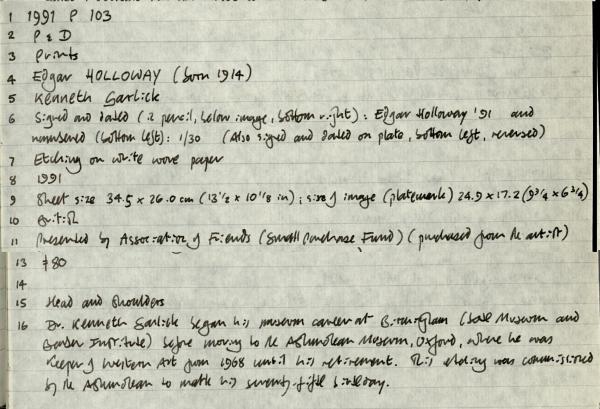 1 1991 P 103
2 P & D
3 Prints
4 Edgar HOLLOWAY (born 1914)
5 Kenneth Garlick
6 Signed and dated (in pencil, below image, bottom right): Edgar Holloway '91 and
numbered (bottom left): 1/30 (Also signed and dated on plate, bottom left, reversed)
7 Etching on white wove paper
8 1991
9 Sheet size 34.5 x 26.0 cm (13 1/2 x 10 1/8 in); size of image (platemark) 24.9 x 17.2 (9 3/4 x 6 3/4)
10 British
11 Presented by Association of Friends (Small Purchase Fund) (purchased from the artist)
13 £80
14
15 Head and shoulders
16 Dr. Kenneth Garlick began his museum career at Birmingham ( Museum and
Barber Institute) before moving to the Ashmolean Museum, Oxford, where he was
Keeper of Western Art from 1968 until his retirement. This etching was commissioned
by the Ashmolean to mark his seventy-fifth birthday.